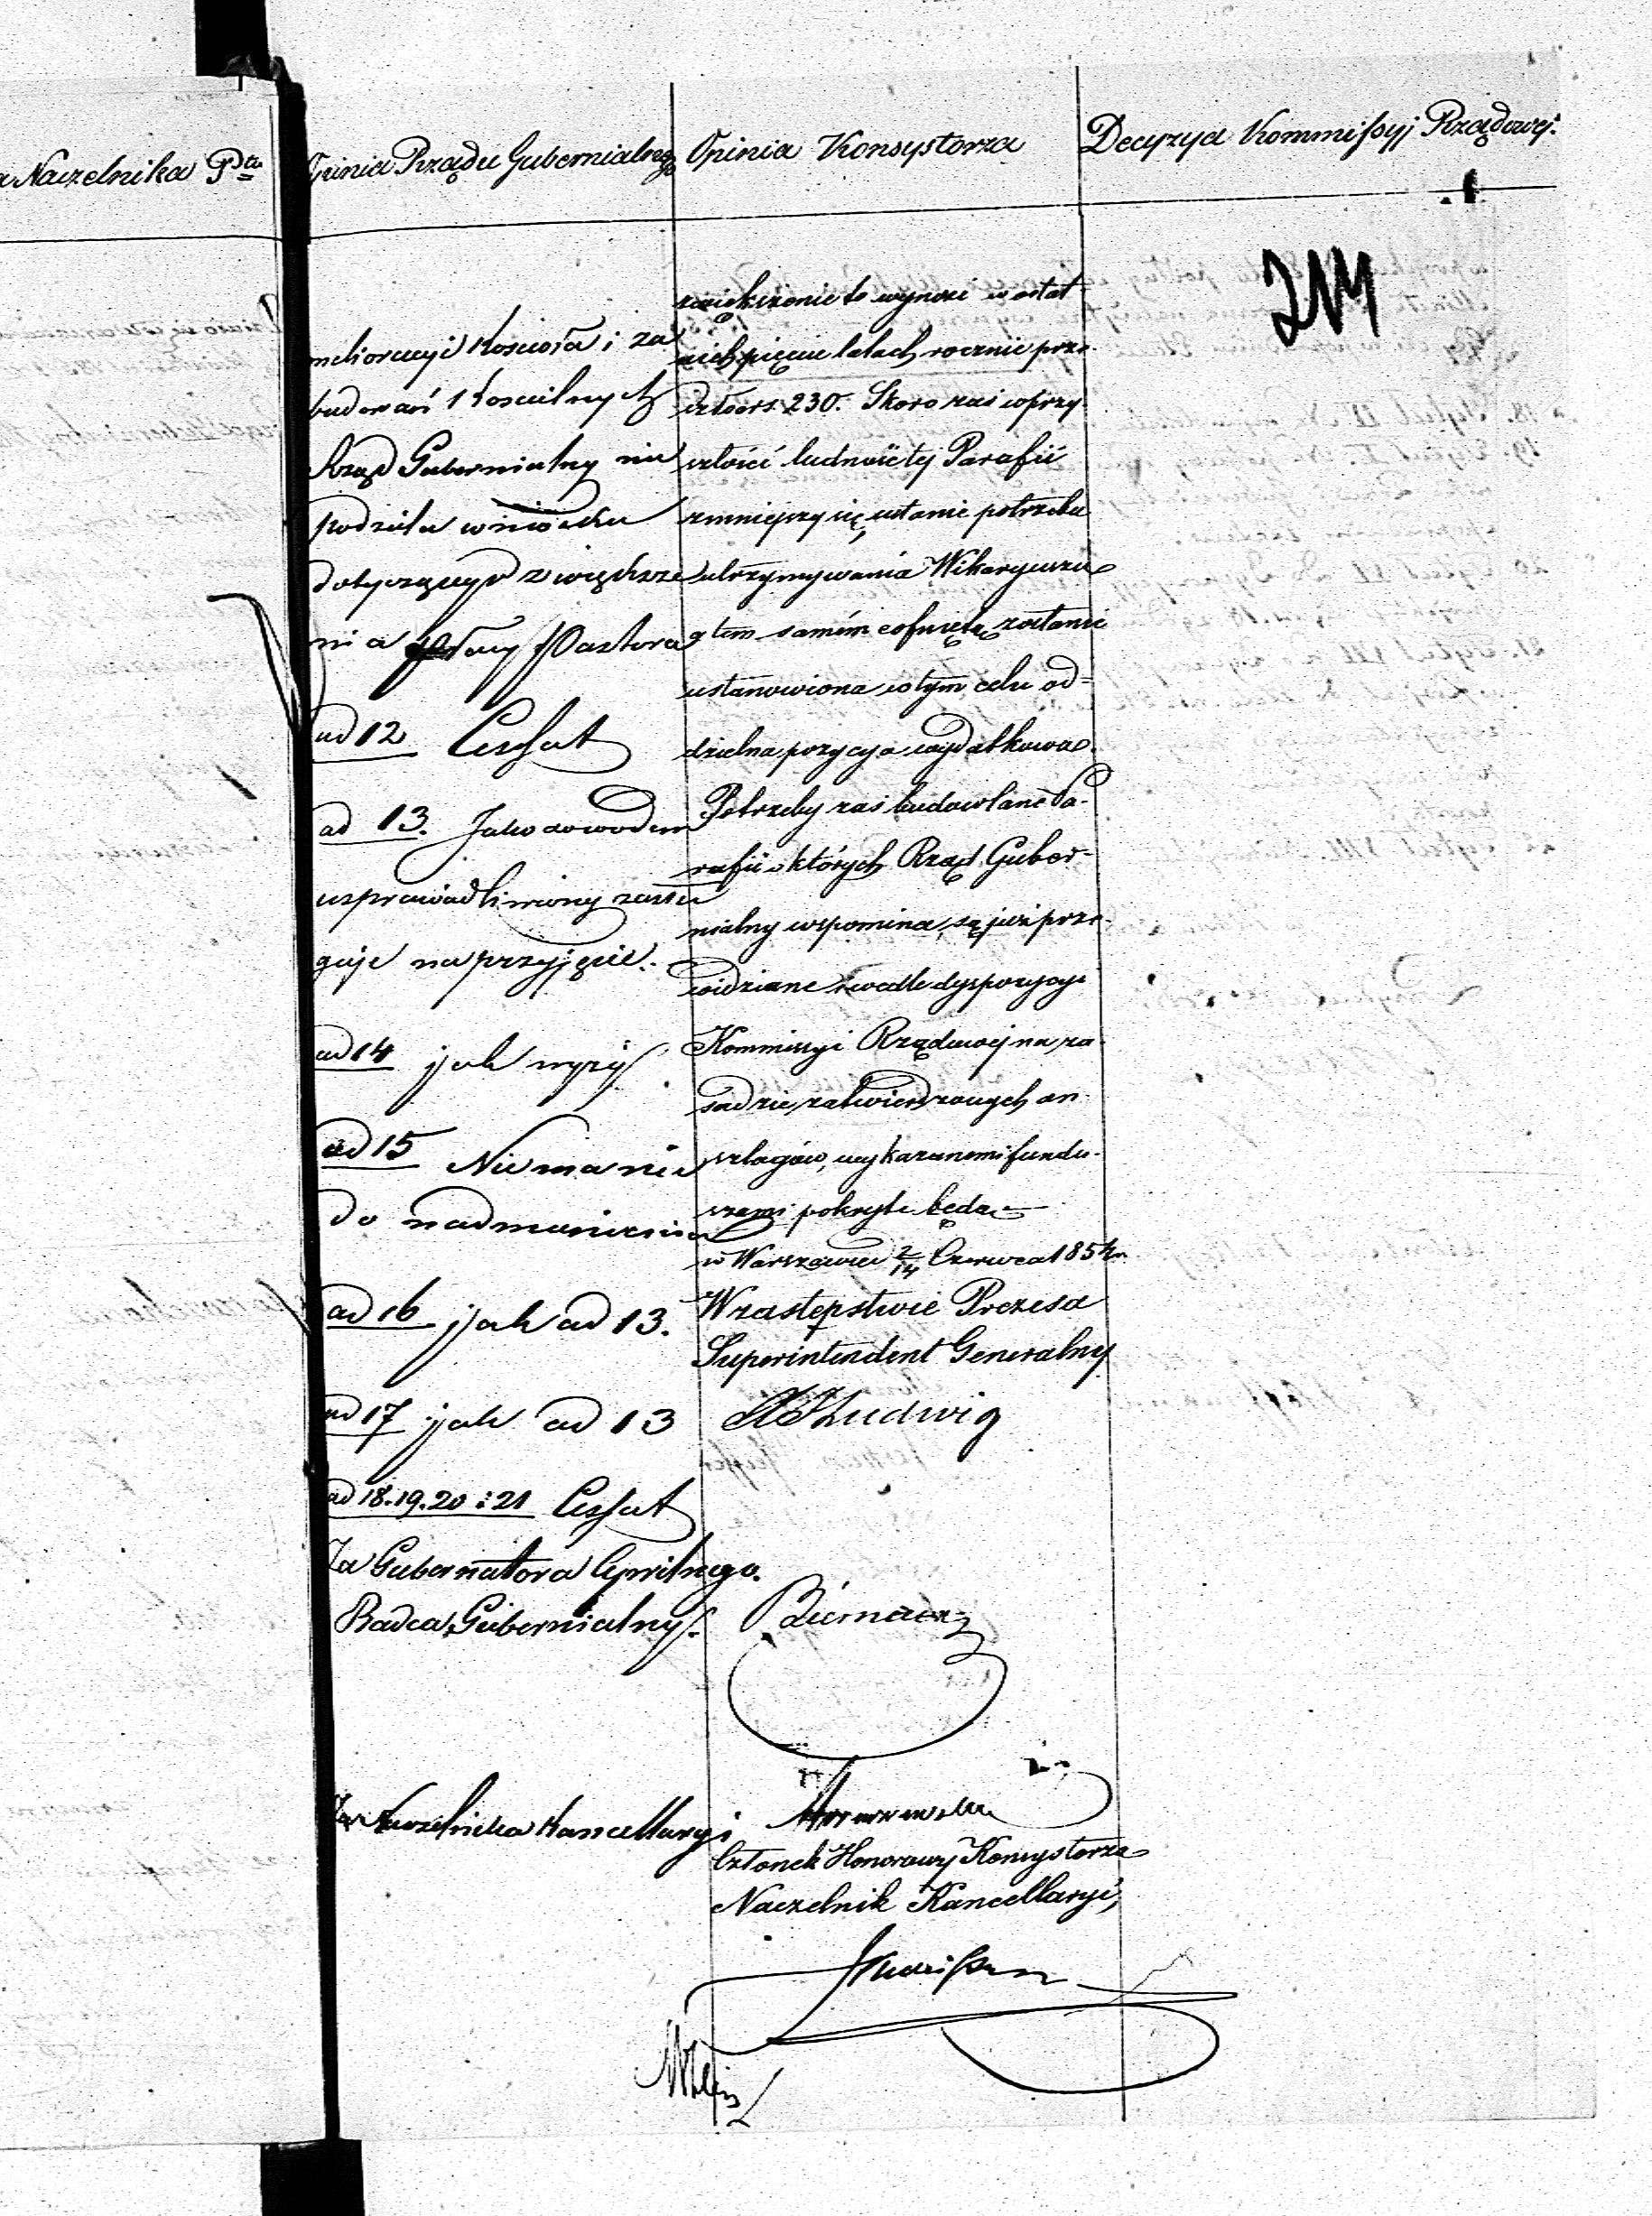 a Naczelnika Pttu
Opinia Rządu Gubernialnego
Opinia Konsystorza
Decyzya Kommissyj Rządowej.
melioracyi Kościoła i za
budowań Kościelnych
Rząd Gubernialny nie
podziela wniosku
dotyczącego zwiększe
nia płacy Pastora
ad 12 Cessat
ad 13. Jako dowodem
usprawiedliwiony zasłu
guje na przyjęcie.
ad 14 jak wyżej
ad 15 Niema nic
do nadmienienia
ad 16 jak ad 13.
ad 17 jak ad 13
ad 18.19.20 i 21 Cessat
Za Gubernatora Cywilnego.
Radca Gubernialny
Za Naczelnika Kancellaryi
zwiększenie to wynosi w ostat
nich pięciu latach rocznie prze
szło rs. 230. Skoro zaś w przy
szłości ludność tej Parafii
zmniejszy się, ustanie potrzeba
utrzymywania Wikaryusza
a tem samém cofniętą zostanie
ustanowiona w tym celu od=
dzielna pozycya wydatkowa.
Potrzeby zaś budowlane Pa-
rafii o których Rząd Guber-
nialny wspomina, są już prze-
widziane i wedle dyspozycyi
Kommissyi Rządowej na za-
sadzie zatwierdzonych an-
szlagów, wykazanemi fundu-
szami pokryte będą
w Warszawie 2/14 Czerwca 185
W zastępstwie Prezesa
Superintendent Generalny
Ludwig
Członek Honorowy Konsystorza
Naczelnik Kancellaryi,